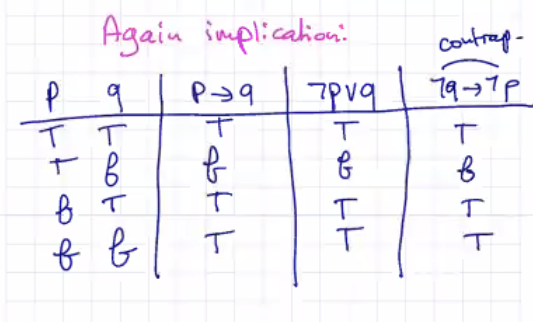 Again implication:
contrap-
p q p→q ¬p∨q ¬q→¬p
T T T T T
T F F F F
F T T T T
F F T T T